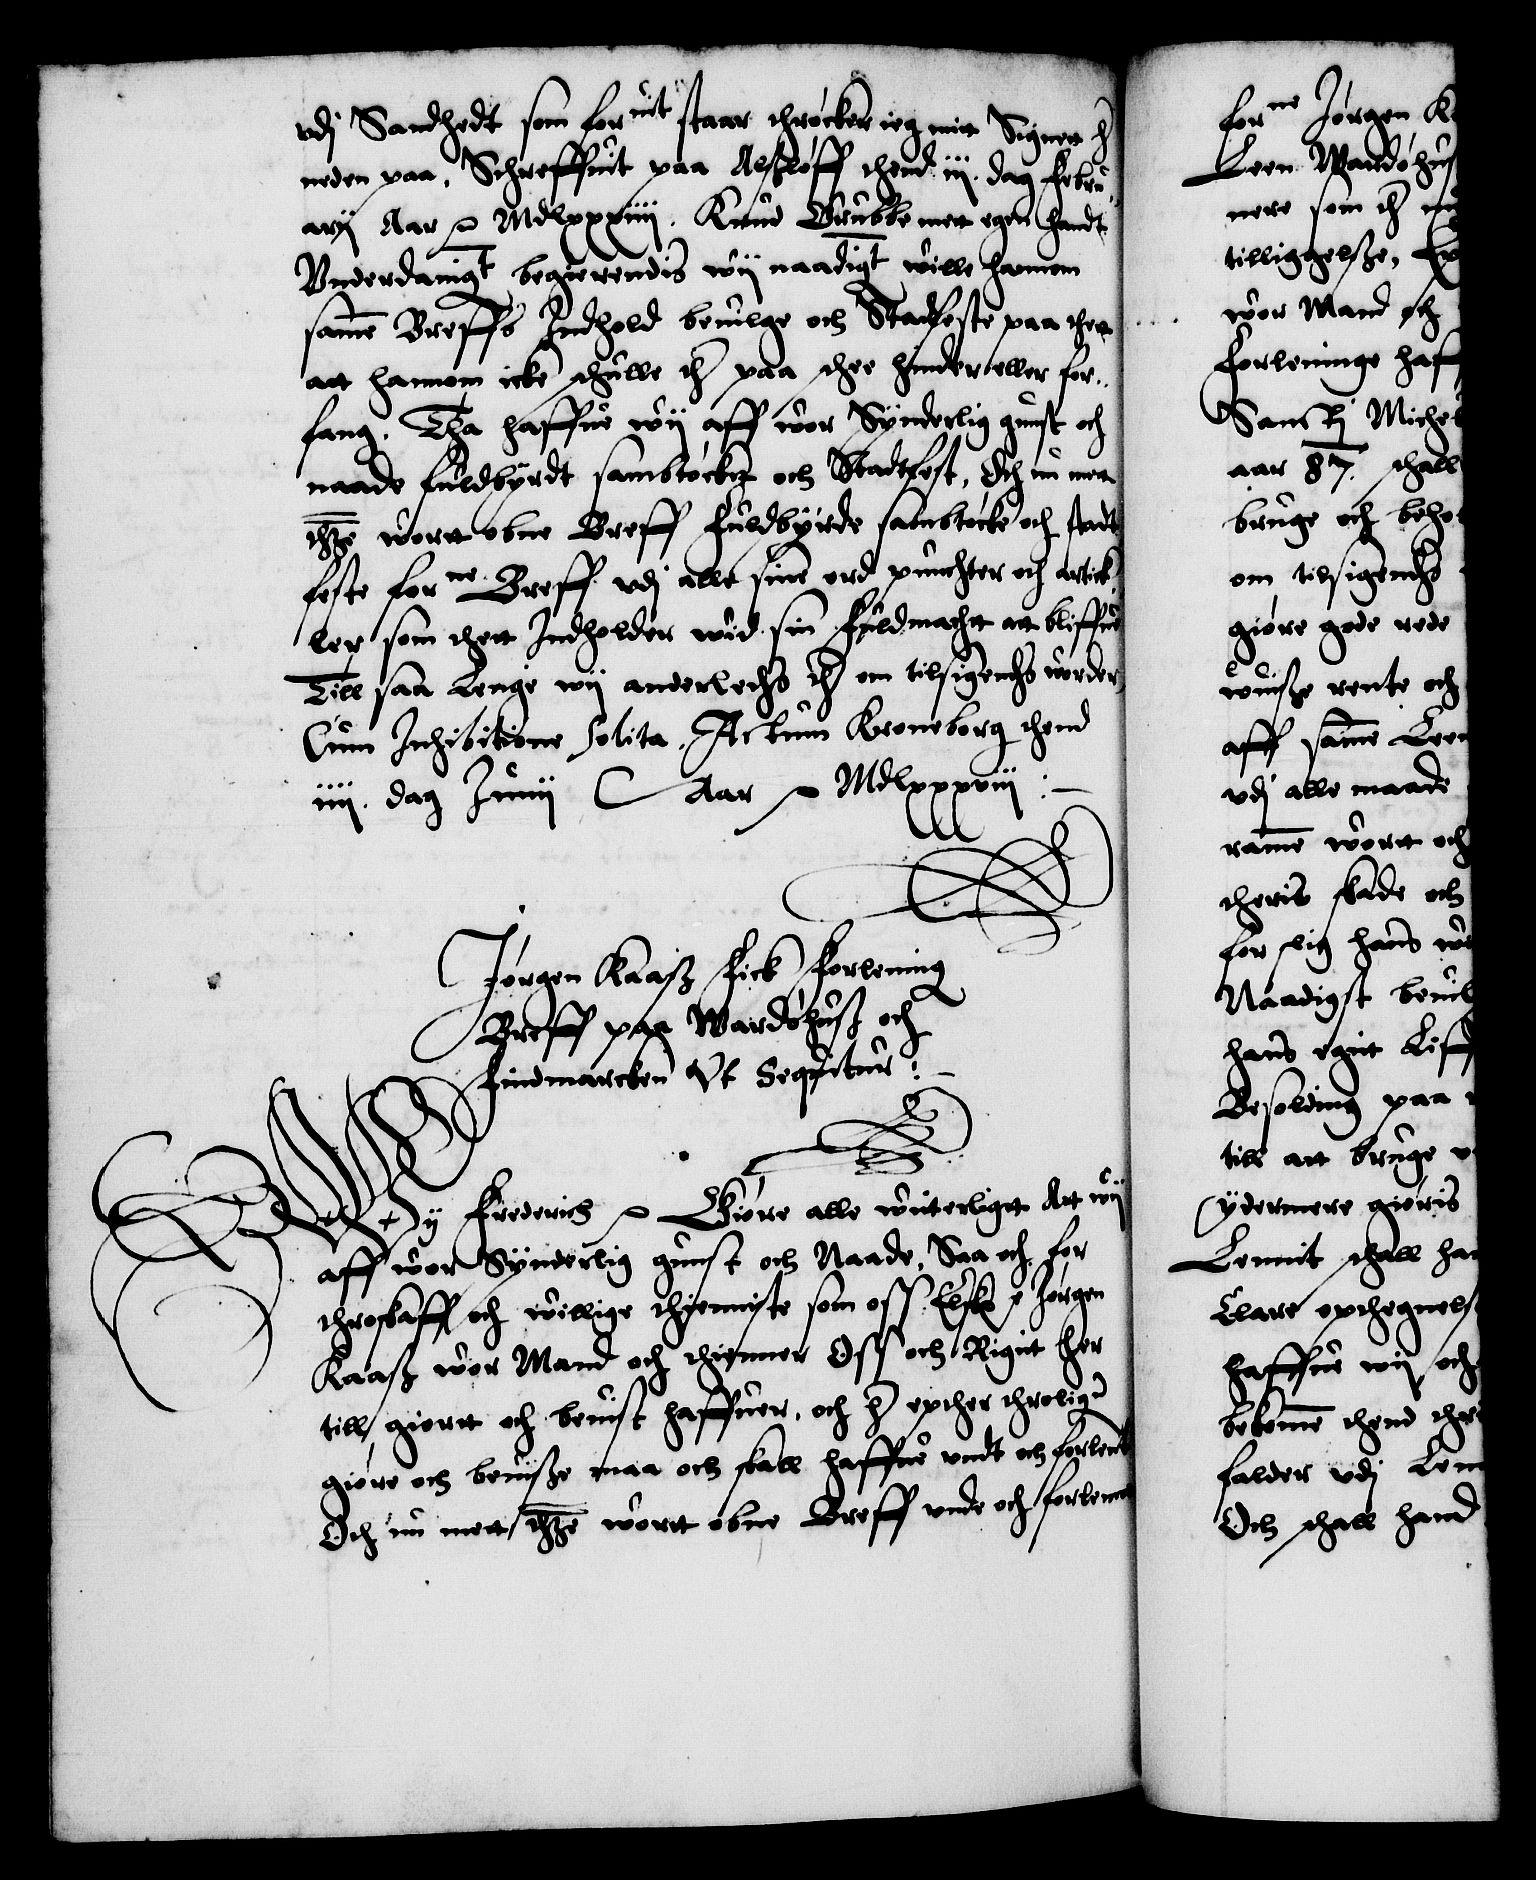 vdj Sandhedt som foruit staar thröcker ieg mit Signett h
neden paa, Schreffuit paa Alsløff thend iij. dag Febru
arij Aar Mdlxxxiiij. Knud Grubbe mett egen handt
Vnderdanigt begierendis wij naadigt wille hannom
samme Breffs Indhold beuilge och Stadfeste paa thett
att hannom icke schulle th paa schee hinder eller for
fang. Tha haffue wij aff wor Synderlig gunst och
naade fuldbyrdt sambtöckt och Stadtfest, Och nu mett
thze wortt obne Breff fuldbyrde sambtöcke och stadt
feste forne Breff vdj alle sine ord puncthter och artick
ler som thett Indholder wid sin fuldmacht att bliffue
Till saa Lenge wij anderledis th om tilsigendis worder
Cum Inhibitione solita. Actum Kroneborg thend
iiij. dag Junij Aar Mdlxxxviij :-
Jörgen Kaass fick forlening
Breff paa Wardöhuss och
findmarcken Vt Sequitur :-
Wy Frederich Giöre alle witterligtt Att wij
aff wor Synderlig gunst och Naade, Saa och for
throskaff och willige thienniste som oss Elsk Jörgen
Kaass wor Mand och thienner Oss och Rigit her
till giortt och beuist haffuer, och h epther throlig
giöre och beuisse maa och skall haffue vndt och forlent
Och nu mett thze wortt obne Breff vnde och forlenne
forne Jörgen K
Leen Wardöhus
nere som th nu
tilliggelsse,
wor Mand och
Forleninge haff
Sancti Michel
aar 87. schall
bruge och beho
om tilsigendis
giöre gode rede
wuisse rente och
aff samme Leen
vdj alle maade
ramme wortt och
theris skade och
for slig hans
Naadigst beuil
hans egit Liff
Besolding paa
till att bruge
ydermere giöris
Lennit schall han
Clare opthegnels
haffue wij och
bekomme thend
falder vdj Len
Och schall hand